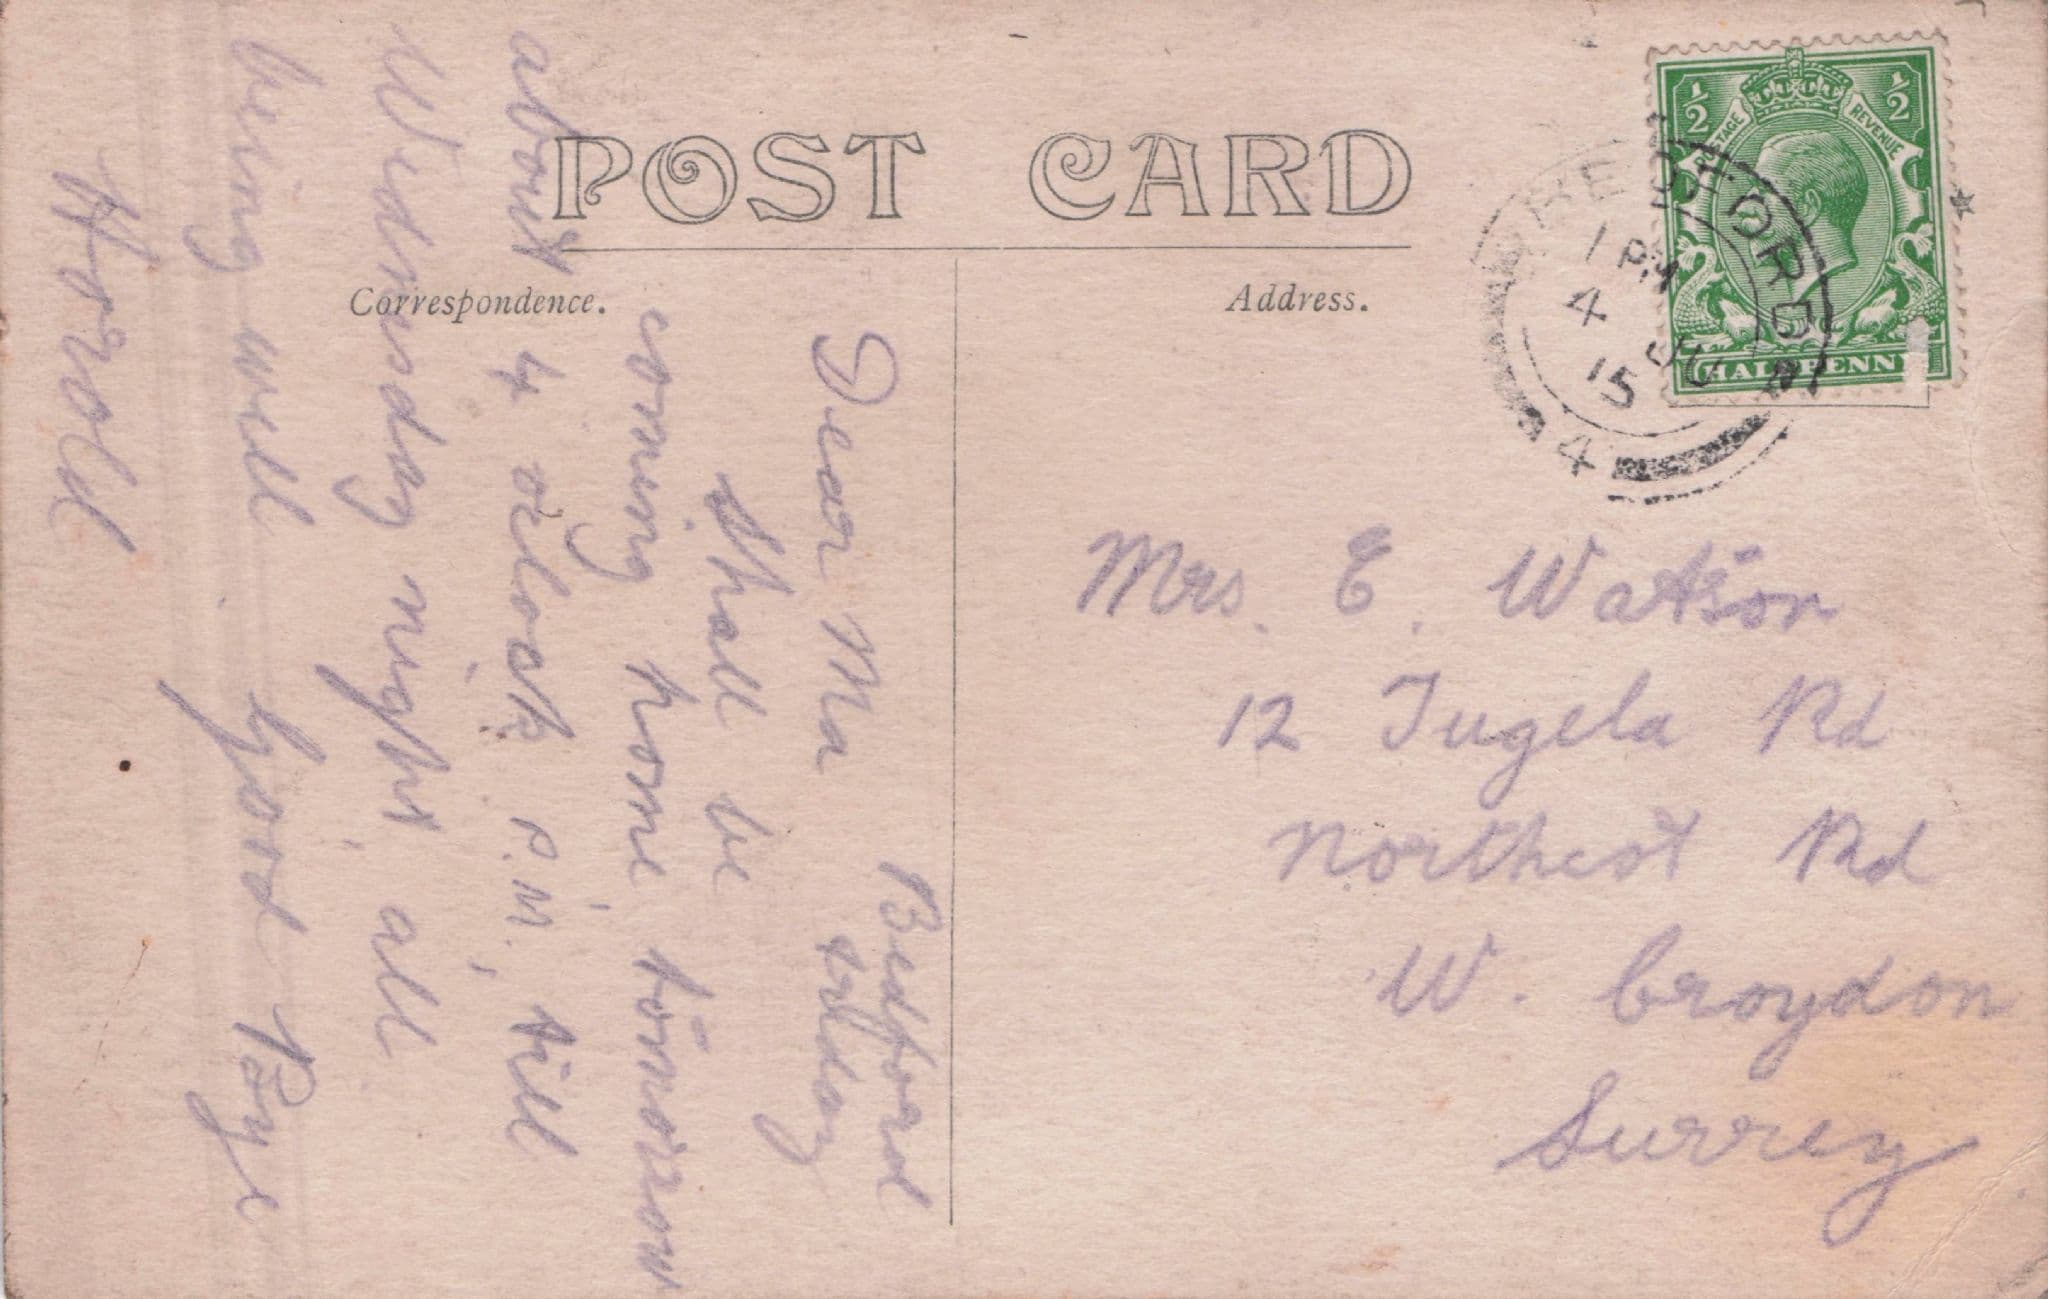 POST CARD
Correspondence.
Address.
½ ½
POSTAGE REVENUE
HALFPENNY
BEDFORD
1 PM
4 JU
15
4
Bedford
Friday
Dear Ma
Shall be
coming home tomorrow
about 4 oclock P.M. till
Wednesday night all
being well. Good Bye
Horold
Mrs. E. Watson
12 Tugela Rd
Northcot Rd
W. Croydon
Surrey